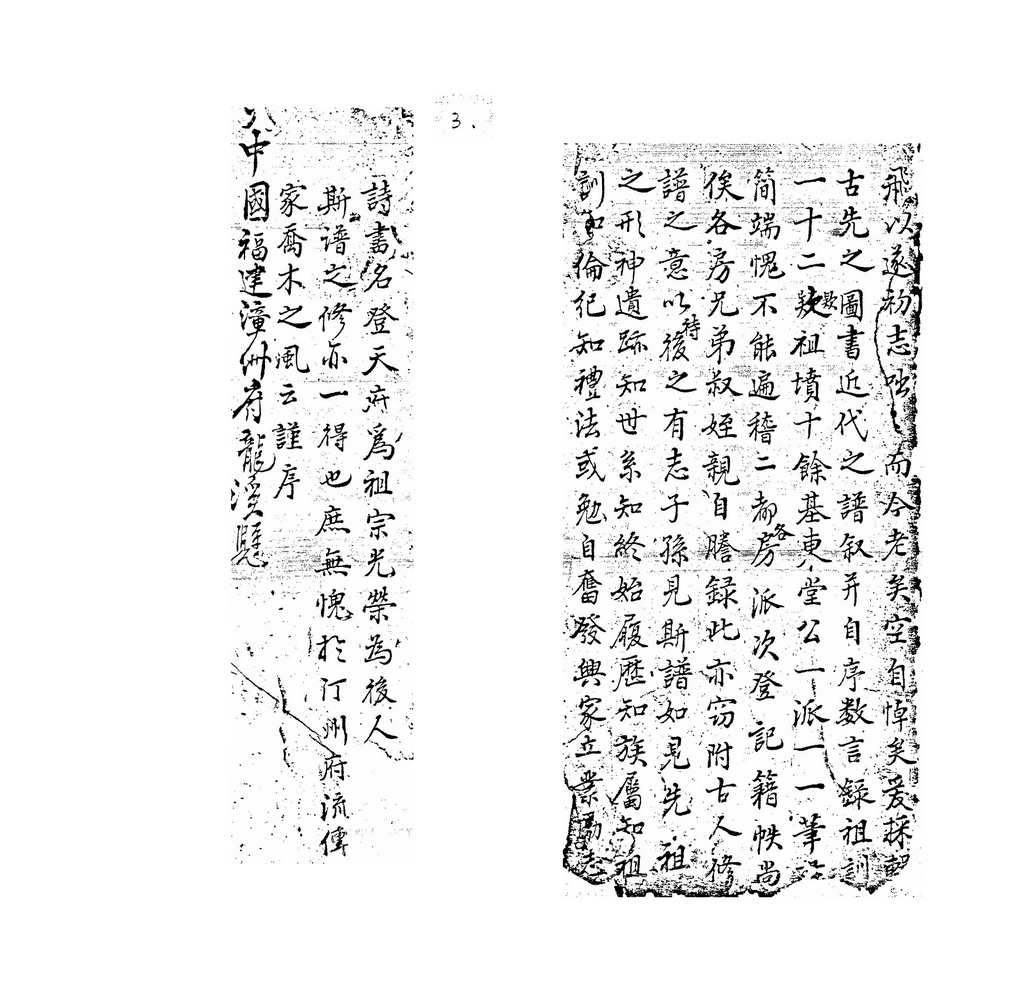 飛以遂初志咄々而今老矣空自悼矣爰採輯
古先之圖書近代之譜叙并自序数言錄祖訓
一十二款祖墳十餘基東堂公一派一一筆
簡端愧不能遍稽二都各房派次登記籍帙尚
俟各房兄弟叔姪親自謄錄此亦窃附古人修
譜之意以待後之有志子孫見斯譜如見先祖
之形神遺跡知世系知終始履歷知族屬知祖
訓知倫紀知禮法或勉自奮發興家立業勵志
3.
詩書名登天府爲祖宗光榮為後人
斯譜之修亦一得也庶無愧於汀州府流傳
家喬木之風云謹序
中國福建漳州府龍溪縣